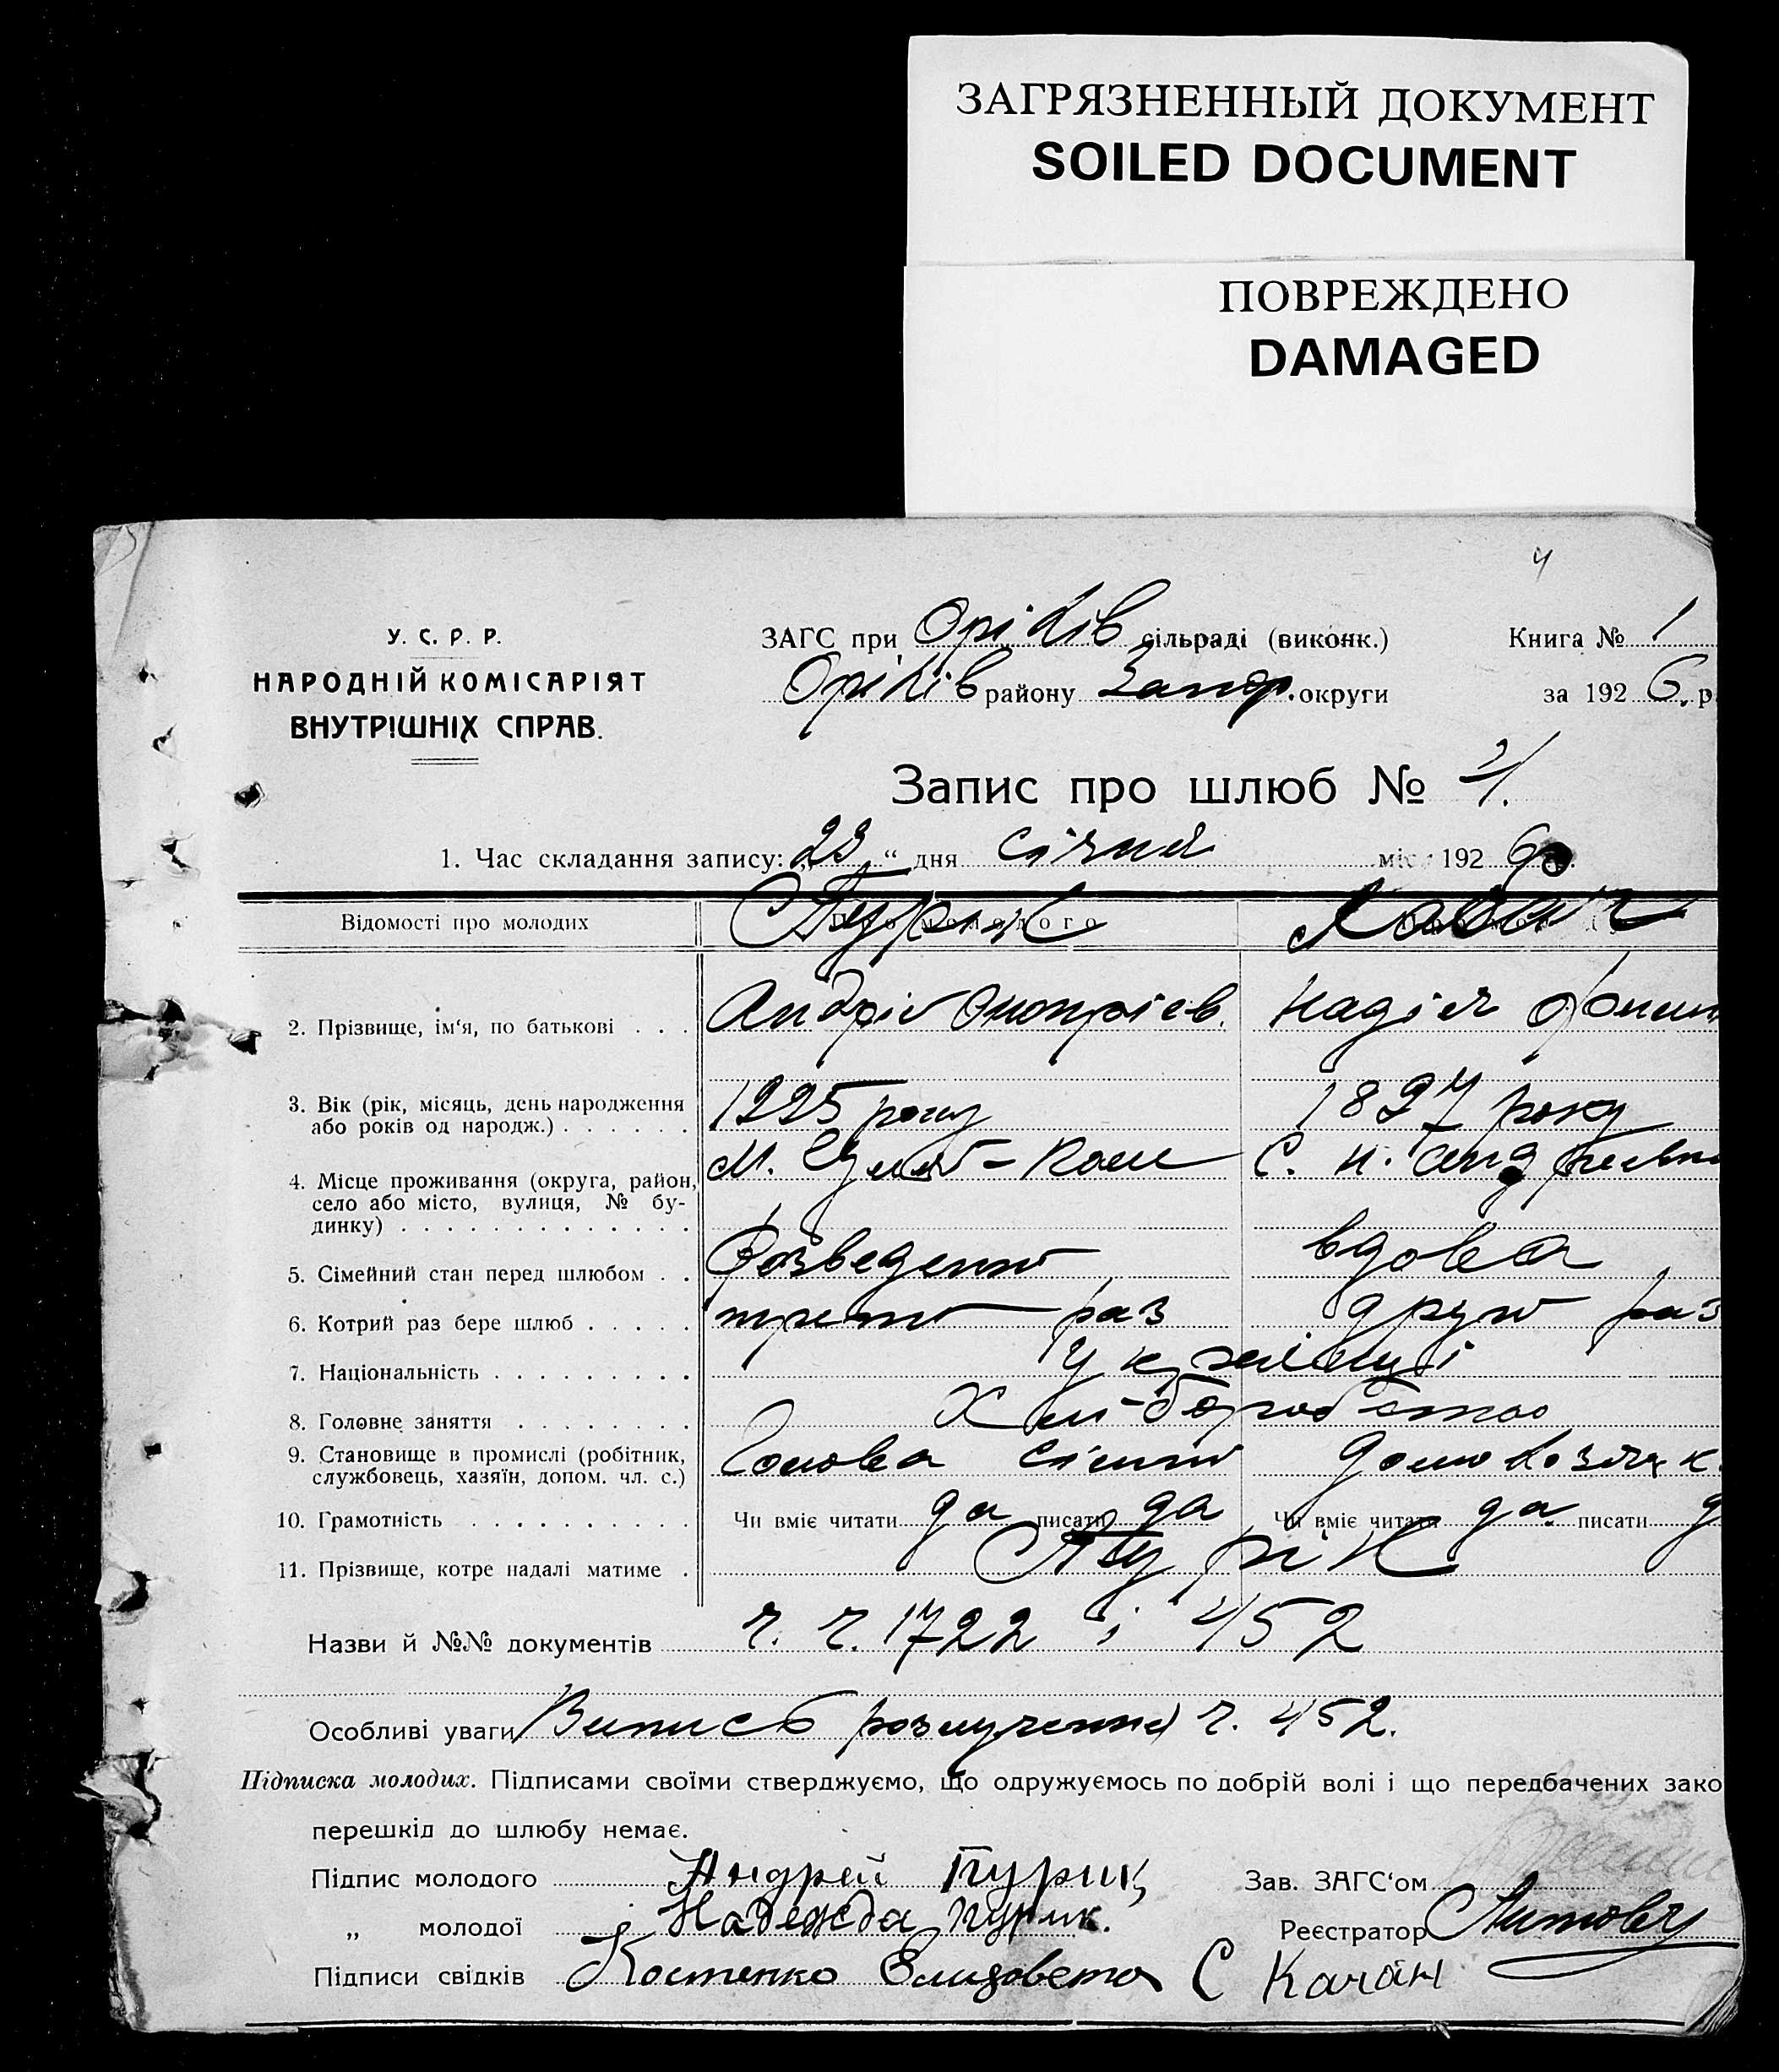 ЗАГРЯЗНЕННЫЙ ДОКУМЕНТ
SOILED DOCUMENT
ПОВРЕЖДЕНО
DAMAGED
4
У. С. Р. Р.
НАРОДНІЙ КОМІСАРІЯТ
ВНУТРІШНІХ СПРАВ.
ЗАГС при Оріхів сільраді (виконк.) Книга № 1
Оріхів району Запор. округи за 1926. р
Запис про шлюб №
1. Час складання запису: „23“ дня січня міс 1926
Відомості про молодих Пурик
2. Прізвище, ім‘я, по батькові . . . Андрій Онопріев. Надія
3. Вік (рік, місяць, день народження року 1897 року
або років од народж.) . . . . . .
4. Місце проживання (округа, район, М. С. Н.
село або місто, вулиця, № бу-
динку) . . . . . . . . . . . . .
5. Сімейний стан перед шлюбом . . Розведений вдова
6. Котрий раз бере шлюб . . . . . третій раз другий раз
7. Національність . . . . . . . . . Українці
8. Головне заняття . . . . . . . .
9. Становище в промислі (робітник, Голова сімьї домохозяйк.
службовець, хазяїн, допом. чл. с.)
10. Грамотність . . . . . . . . . . Чи вміє читати да писати да Чи вміє читати да писати д
11. Прізвище, котре надалі матиме . Пурік
Назви й №№ документів ч. ч. 1722 і 452
Особливі уваги Випись розлучення ч. 452.
Підписка молодих. Підписами своїми стверджуємо, що одружуємось по добрій волі і що передбачених зако
перешкід до шлюбу немає.
Підпис молодого Андрей Пурик Зав. ЗАГС‘ом
„ молодої Надежда Пурик. Реєстратор
Підписи свідків Костенко Елизовета С Качан